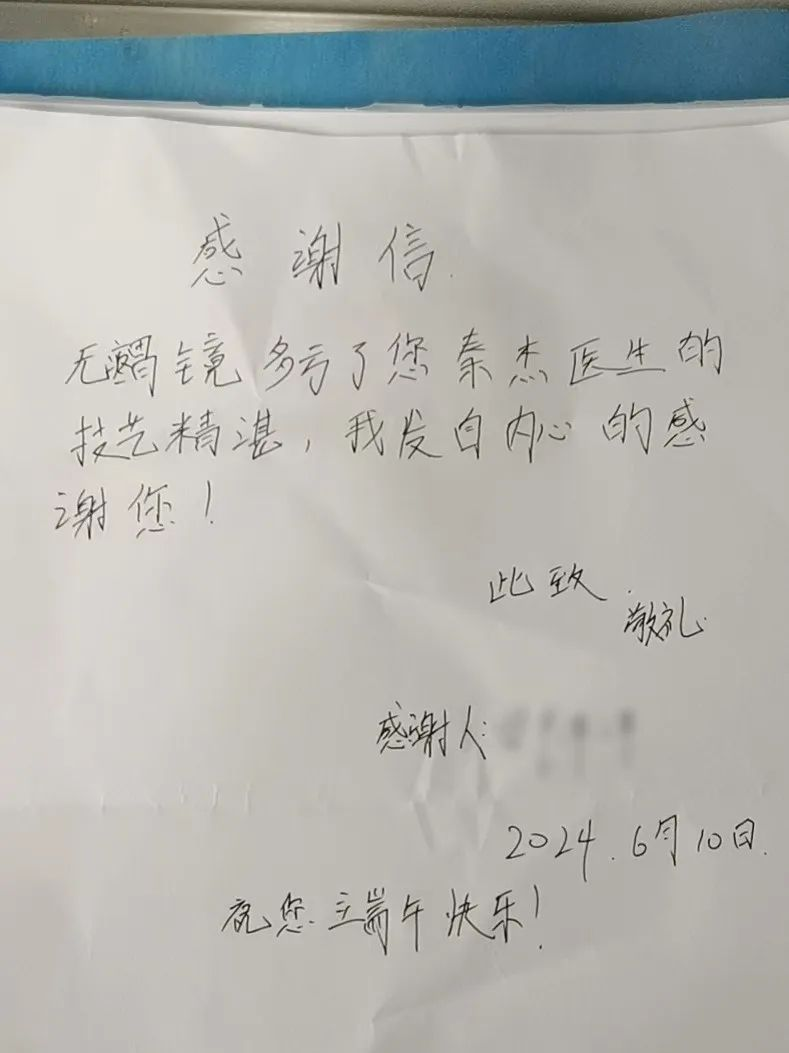 感谢信.
无 镜多亏了您秦杰医生的
技艺精湛，我发自内心的感
谢您！
此致.
敬礼
感谢人:
2024.6月10日.
祝您端午快乐！